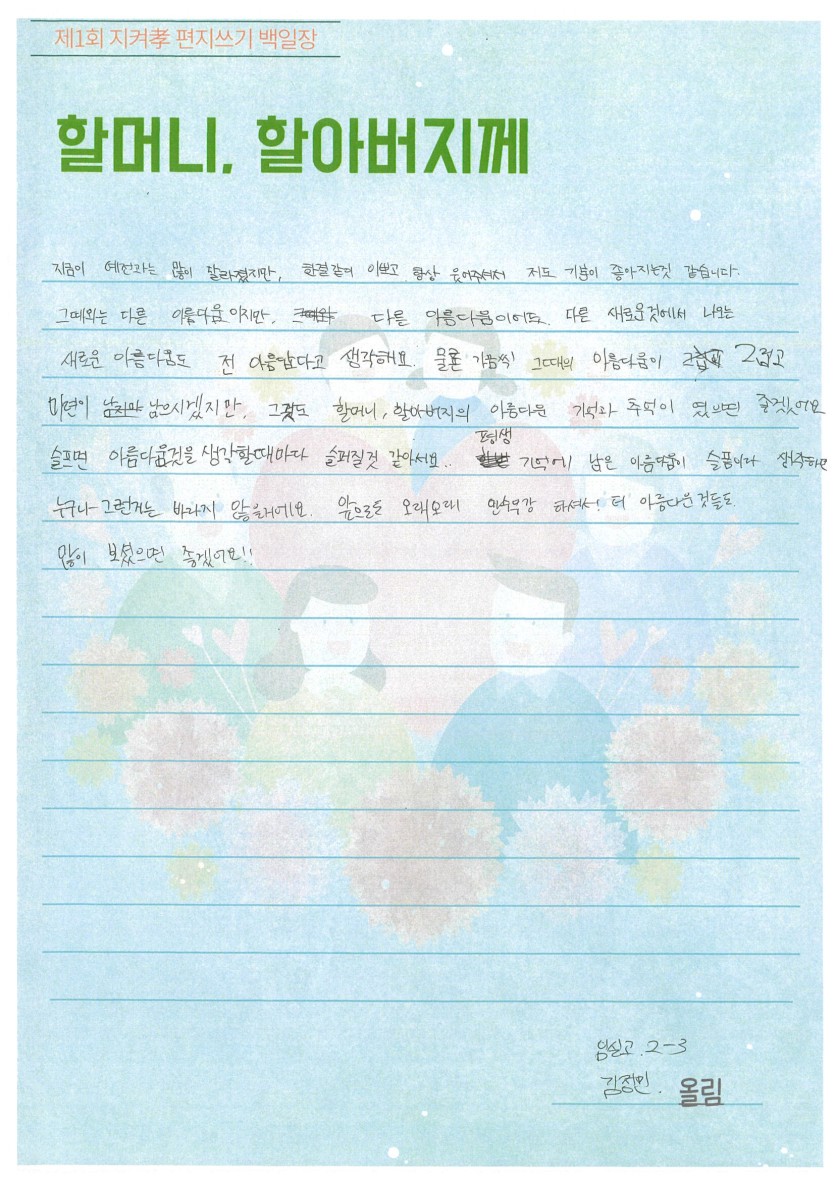 제1회 지켜孝 편지쓰기 백일장
할머니, 할아버지께
지금이 예전과는 많이 달라졌지만, 한결같이 이쁘고 항상 웃어주셔서 저도 기분이 좋아지는것 같습니다.
그때와는 다른 아름다움이지만, 다른 아름다움이어도 다른 새로운것에서 나오는
새로운 아름다움도 전 아름답다고 생각해요. 물론 가끔씩 그때의 아름다움이 그립고
미련이 남으시겠지만, 그것도 할머니, 할아버지의 아름다운 기억과 추억이 였으면 좋겠어요
슬프면 아름다움것을 생각할때마다 슬퍼질것 같아서요.. 평생 기억에 남은 아름다움이 슬픕니다 생각하면
누구나 그런거는 바라지 않을거에요. 앞으로도 오래오래 만수무강 하셔서! 더 아름다운것들도
많이 보셨으면 좋겠어요!!
임실고. 2-3
김정민. 올림